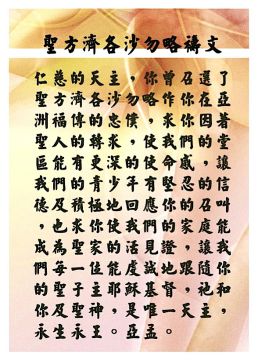 聖方濟各沙勿略禱文
仁慈的天主，你曾召選了
聖方濟各沙勿略作你在亞
洲福傳的忠僕，求你因著
聖人的轉求，使我們的堂
區能有更深的使命感，讓
我們的青少年有堅忍的信
德，及積極地回應你的召叫
，也求你使我們的家庭能
成為聖家的活見證，讓我
們每一位能度誠地跟隨你
的聖子主耶穌基督，祂和
你及聖神，是唯一天主，
永生永王。亞孟。